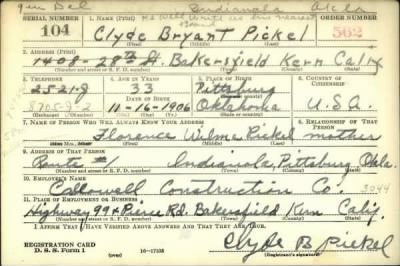 Gen Del Indianola Okla
SERIAL NUMBER 1. NAME (Print) ORDER NUMBER
104 Clyde Bryant Pickel 562
(First) (Middle) (Last)
2. ADDRESS (Print)
1408-28th St. Bakersfield Kern Calif
(Number and street or R. F. D. number) (Town) (County) (State)
3. TELEPHONE 4. AGE IN YEARS 5. PLACE OF BIRTH 6. COUNTRY OF CITIZENSHIP
2521-J 33 Pittsburg
DATE OF BIRTH (Town or county)
10-16-1906 Oklahoma U.S.A.
(Exchange) (Number) (Mo.) (Day) (Yr.) (State or country)
7. NAME OF PERSON WHO WILL ALWAYS KNOW YOUR ADDRESS 8. RELATIONSHIP OF THAT PERSON
Florence Wilma Pickel mother
(Mr., Mrs., Miss) (First) (Middle) (Last)
9. ADDRESS OF THAT PERSON
Route #1 Indianola, Pittsburg Okla.
(Number and street or R. F. D. number) (Town) (County) (State)
10. EMPLOYER'S NAME
Construction Co.
11. PLACE OF EMPLOYMENT OR BUSINESS
Highway 99 & Pierce Rd. Bakersfield Kern Calif.
(Number and street or R. F. D. number) (Town) (County) (State)
I AFFIRM THAT I HAVE VERIFIED ABOVE ANSWERS AND THAT THEY ARE TRUE.
REGISTRATION CARD
D. S. S. Form 1 16-17105 Clyde B Pickel
(Registrant's signature)